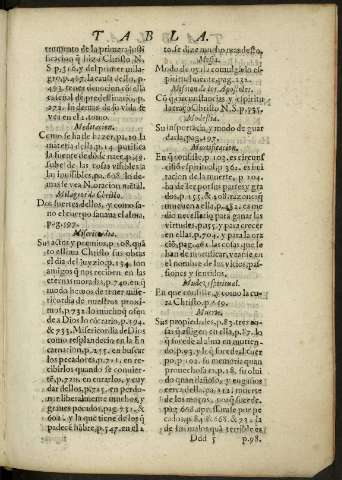 TABLA.
tremento de la primera justi
ficacion q̃ hizo Christo N.
S. p. 516. y del primer mila-
gro, p. 497. la causa dello, p.
493. tener deuocion cõ ella
es señal de predestinado, p.
272. In demas de su vida, &
vea en el 2. tomo.
Meditacion.
Como se ha de hazer, p. 10. la
materia della, p. 14. purifica
la fuente de dõde nace, p. 49.
sube de las cosas visibles a
las inuisibles, pa. 608. lo de
mas se vea N. oracion mẽtal.
Milagros de Christo.
Dos fuertes dellos, y como sa-
no el cuerpo sanaua el alma,
pag. 197.
Misericordia.
Sus actos y premios, p. 108. quã
to estima Christo sus obras
el dia del juyzio, p. 134. son
amigos q̃ nos reciben en las
eternas moradas, p. 740. en q̃
modo hemos de tener mise-
ricordia de nuestros proxi-
mos, p. 732. lo mucho q̃ ofen
de a Dios lo cõtrario, p. 594.
& 753. Misericordia de Dios
como resplandecio en la En
carnacion, p. 255. en buscar
los pecadores, p. 721. en re-
cibirlos quando se conuier-
tẽ, p. 722. en curarlos, y cuy
dar dellos, p. 725. en perdo-
nar liberalmente muchos, y
grandes pecados, pag. 731. &
602. y la que tiene de los q̃
padecẽ hãbre, p. 547. en el s.
to se dize mucho mas desto,
Missa.
Modo de oyrla comulgãdo es-
piritualmente, pag. 132.
Mission de los Apostoles.
Cõ q̃ circunstancias y espiritu
la trago Christo N. S. p. 535.
Modestia.
Su importãcia, y modo de guar
darla, pag. 197.
Mortificacion.
En q̃ consiste, p. 103. es circunci
sion espiritual, p. 361. es imi
tacion de la muerte, p. 104.
ha de ser por sus partes y gra
dos, p. 155. & 108. razones q̃
mueuen a ella, p. 482. es me
dio necessario para ganar las
virtudes, p. 155. y para crecer
en ellas, p. 704. y para la ora
ciõ, pag. 46. las cosas que se
han de mortificar, vease en
el nombre de los vicios, pas-
siones y sentidos.
Mudez espiritual.
En que consiste, y como la cu-
ra Christo, p. 659.
Muerte.
Sus propiedades, p. 83. tres co-
sas q̃ assigen en ella, p. 87. lo
que sucede al alma en murien-
do, p. 93. y lo q̃ sucede al cuer
po, p. 102. de su memoria es
prouechosa en, p. 18. su oluido
quan dañoso, y engaños
cerca della, p. 111. & 113.
lo q̃ en la muerte sucede,
pag. 666. ayre ssoñale por pe
cado, p. 84. & 668. & 73. la
de los malos quã terrible es,
Ddd 5 p. 98.